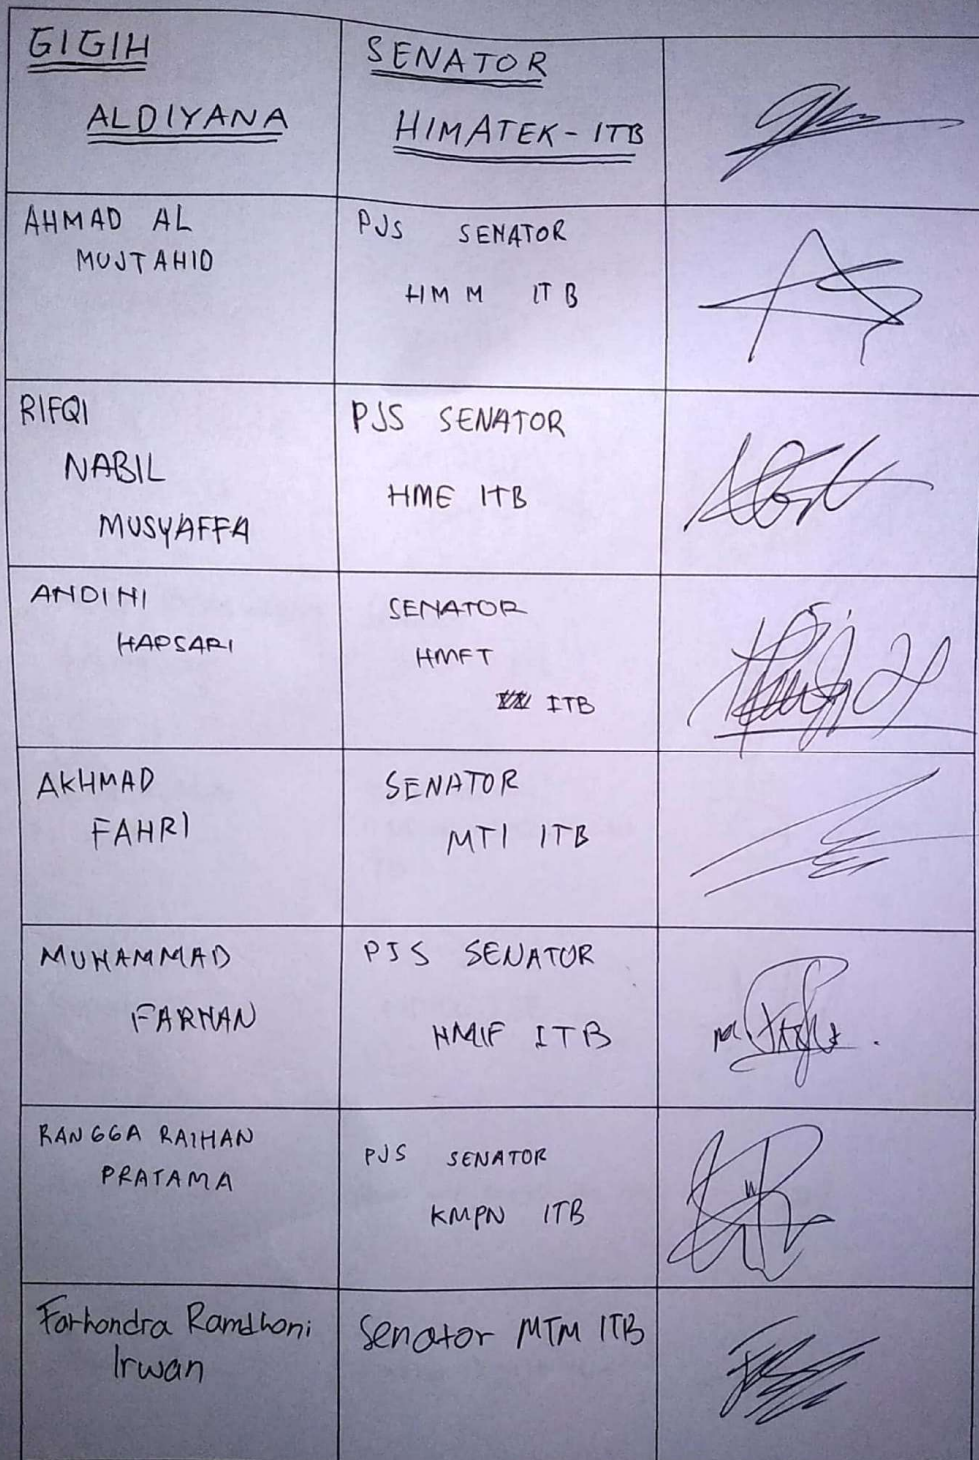 GIGIH
ALDIYANA
SENATOR
HIMATEK - ITB
AHMAD AL
MUJTAHID
PJS SENATOR
HMM ITB
RIFQI
NABIL
MUSYAFFA
PJS SENATOR
HME ITB
ANDINI
HAPSARI
SENATOR
HMFT
ITB
AKHMAD
FAHRI
SENATOR
MTI ITB
MUHAMMAD
FARHAN
PJS SENATOR
HMIF ITB
RANGGA RAIHAN
PRATAMA
PJS SENATOR
KMPN ITB
Farhandra Ramdhani
Irwan
Senator MTM ITB